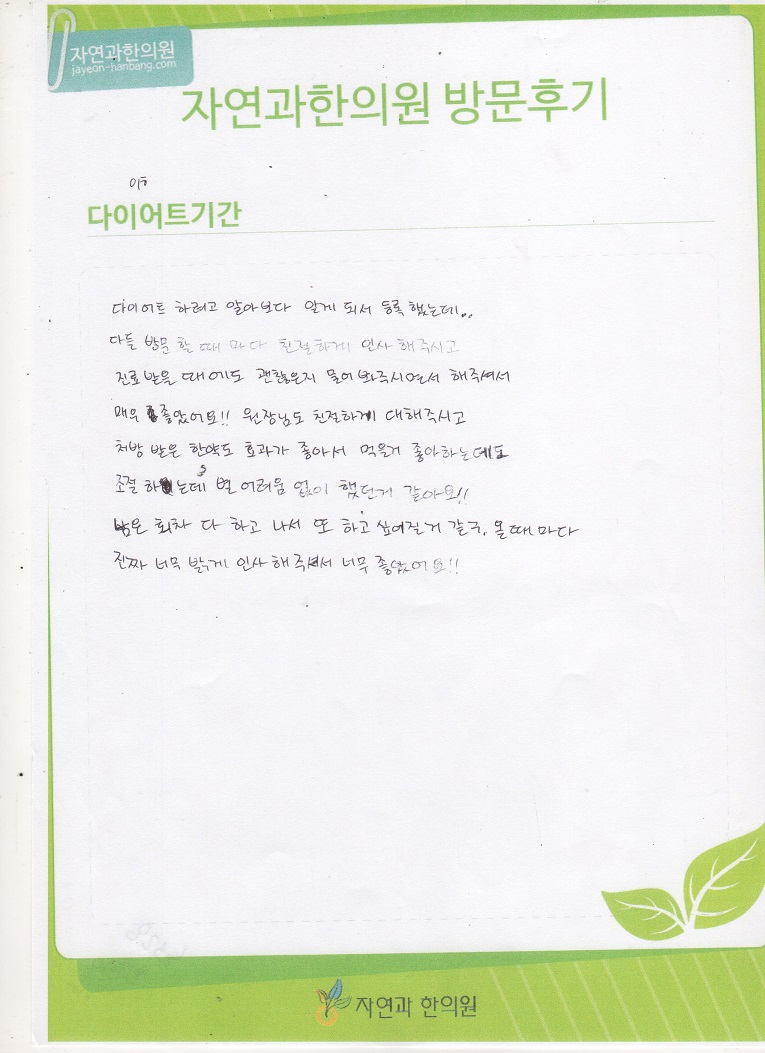 자연과한의원
jayeon-hanbang.com
자연과한의원 방문후기
다이어트기간
다이어트 하려고 알아보다 알게 되서 등록 했는데..
다들 방문 할 때 마다 친절하게 인사 해주시고
진료 받을 때에도 괜찮은지 물어 봐주시면서 해주셔서
매우 좋았어요!! 원장님도 친절하게 대해주시고
처방 받은 한약도 효과가 좋아서 먹을거 좋아하는데도
조절 하는데 별 어려움 없이 했던거 같아요!!
남은 회차 다 하고 나서 또 하고 싶어질거 같구, 올때 마다
진짜 너무 밝게 인사 해주셔서 너무 좋았어요!!
자연과 한의원